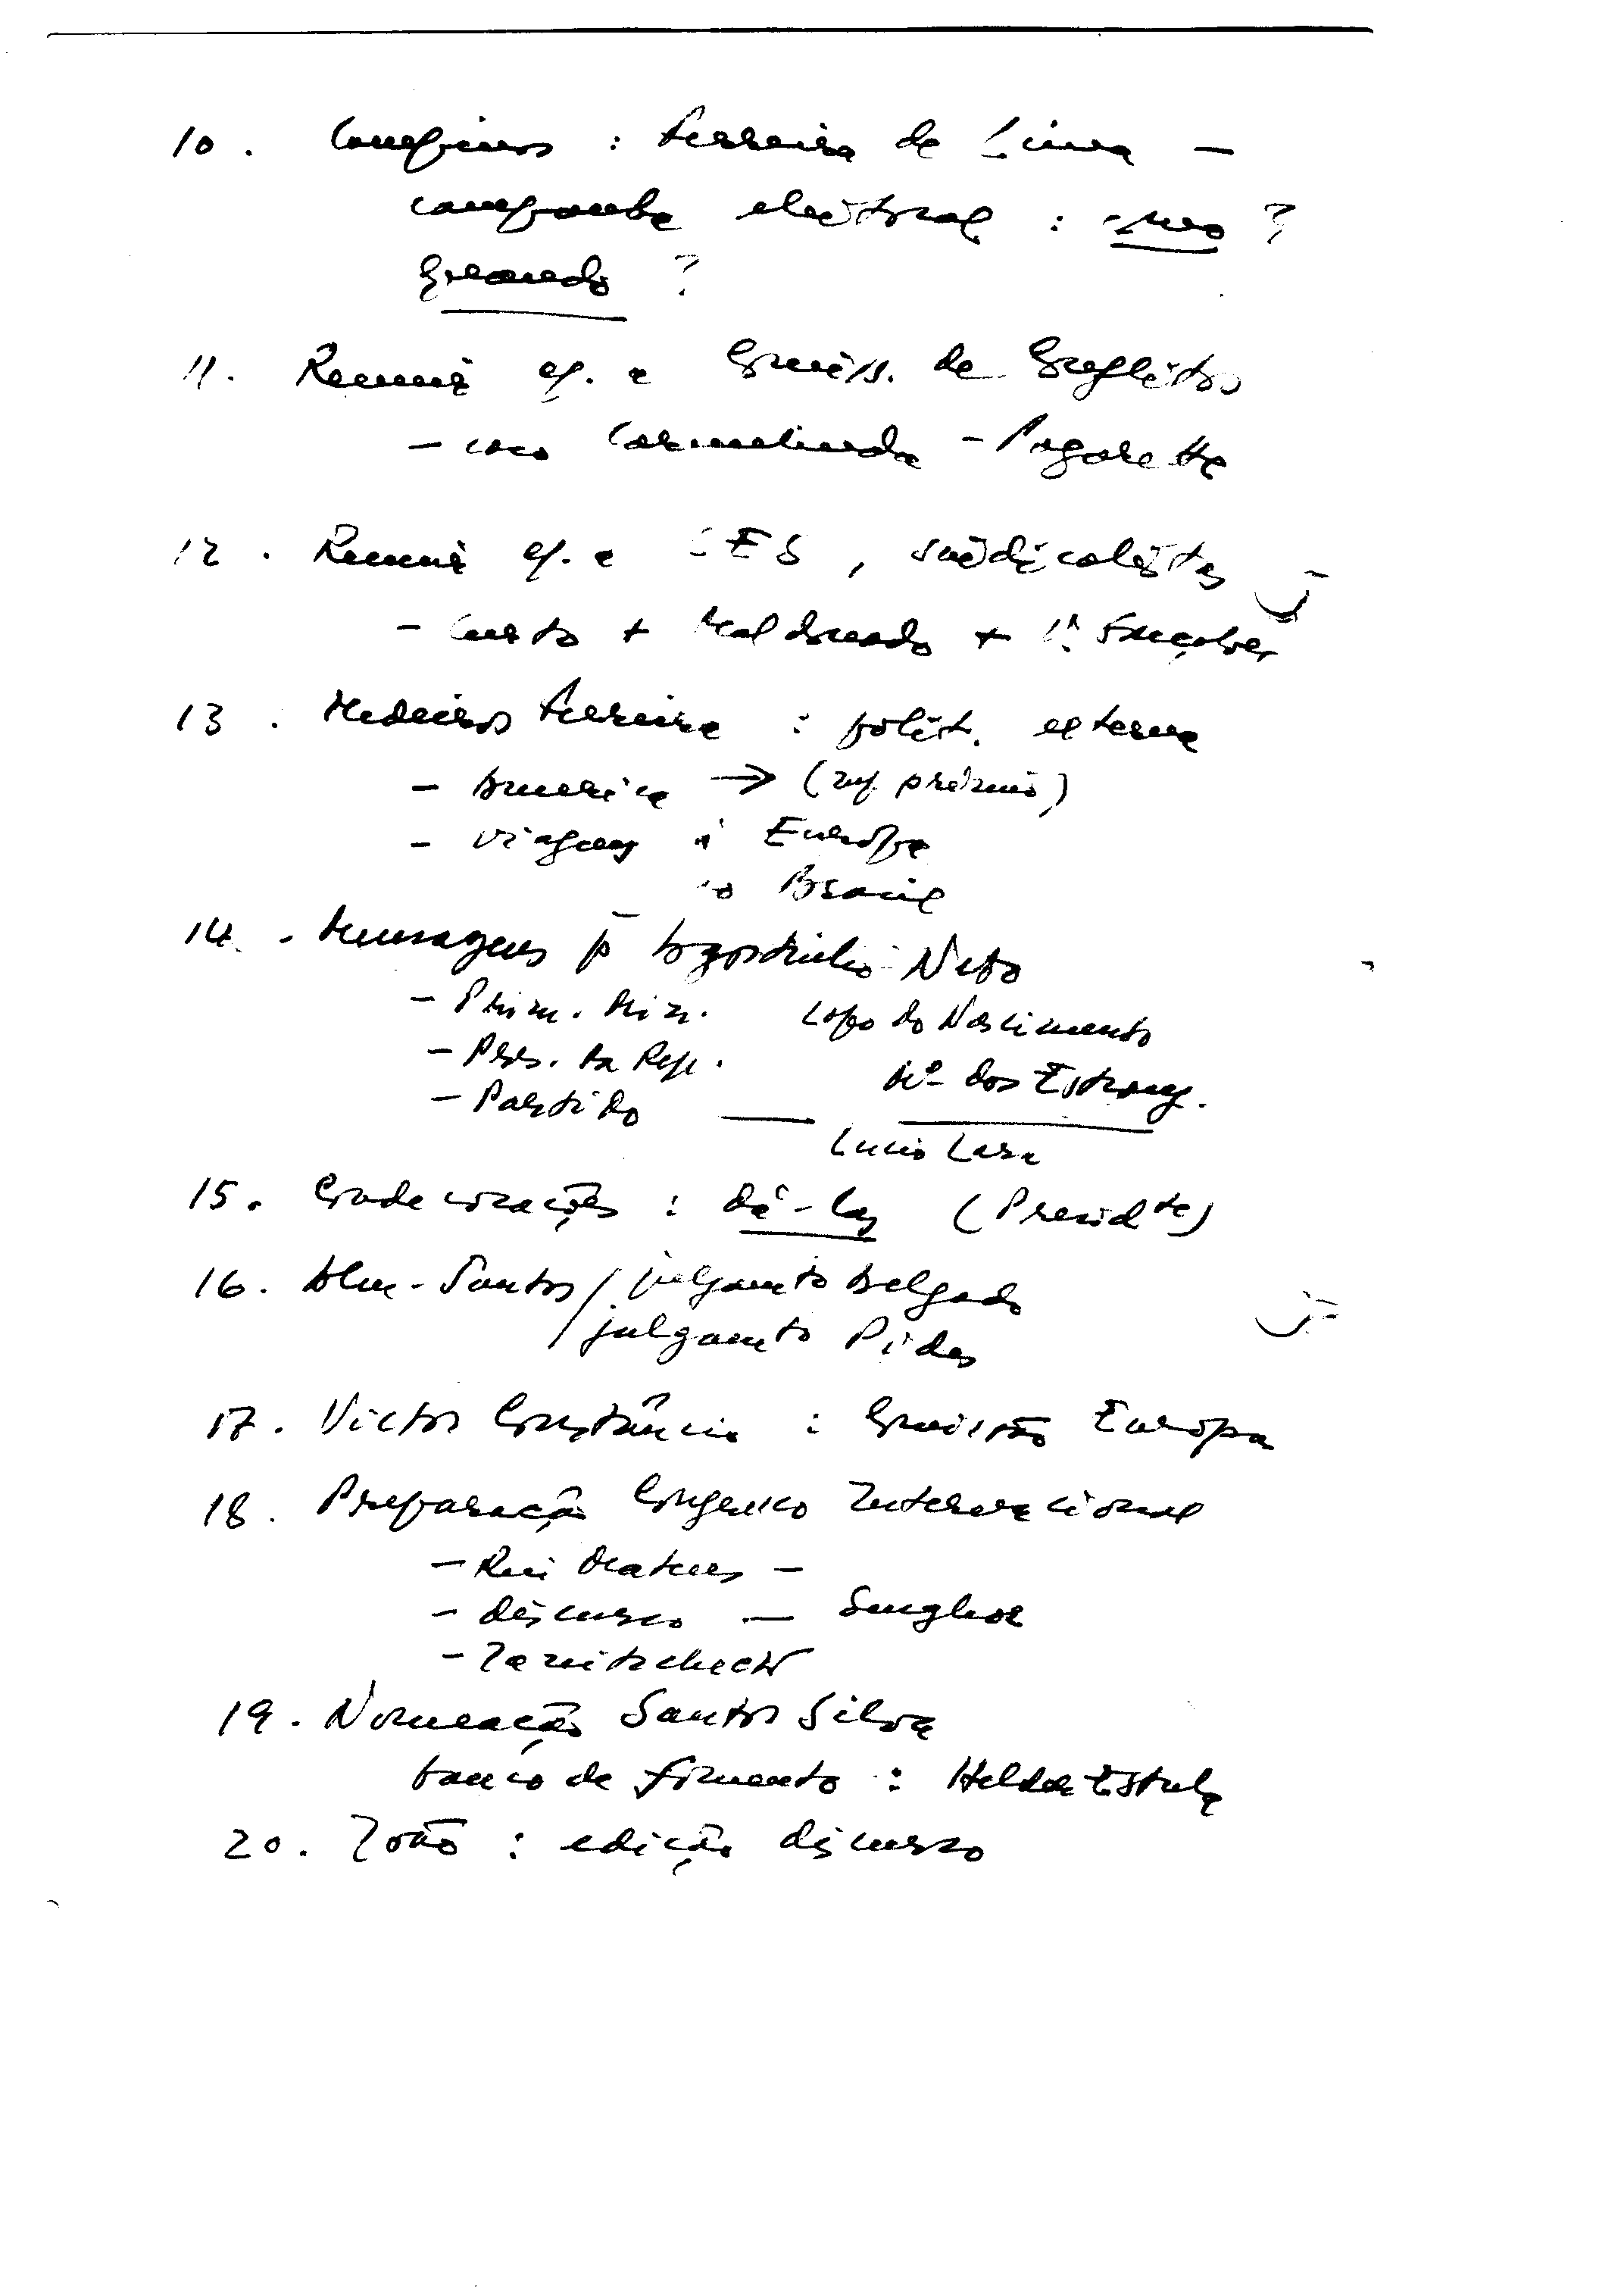 10. Campinos : Ferreira de Lima –
campanha eleitoral : como ?
quando ?
11. Reunião c/. a Comiss. de Conflitos
– com Carmelinda – Pogorelta
12. Reunião c/. a , sindicalistas
– Curto + Maldonado + Gonçalves
13. Medeiros Ferreira : polít. externa
– América → (ref. próximo)
– Viagens à Europa
ao Brasil
14. Mensagens p Agostinho Neto
– Prim. Min. Lopo do Nascimento
– Pres. da Rep. Mº dos Estrang.
– Partido — Lucio Lara
15. Condecorações : dá-las (Presidte)
16. Alm. Santos / julgamto Delgado
/ julgamto Pides
17. Victor Constâncio : Comissão Europa
18. Preparação Congresso Internacional
– Rui Mateus –
– discurso — Senghor
– Zenitchech
19. Nomeação Santos Silva
banco de fomento :
20. João : edição discurso